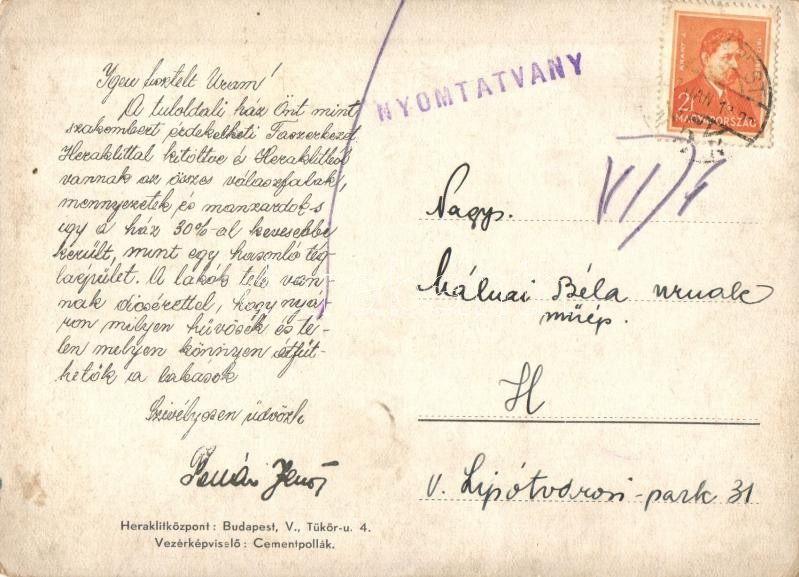 Igen tisztelt Uram!
A túloldali ház Önt mint
szakembert érdekelheti Faszerkezet
Heraklittal kitöltve és Heraklitból
vannak az összes válaszfalak,
mennyezetek és manzardok s
így a ház 30%-al kevesebbe
került, mint egy hasonló tég-
laépület. A lakók tele van-
nak dicsérettel, hogy nyá-
ron milyen hűvösek és te-
len melyen könnyen átfűt-
hetők a lakások
Szívélyesen üdvözli
Jenő
Heraklitközpont: Budapest, V., Tükör-u. 4.
Vezérképviselő: Cementpollák.
NYOMTATVANY
ARANY J.
2f
MAGYARORSZÁG
VI/4
Nagys.
Málnai Béla urnak
műép.
H
V. Lipótvárosi-park 31